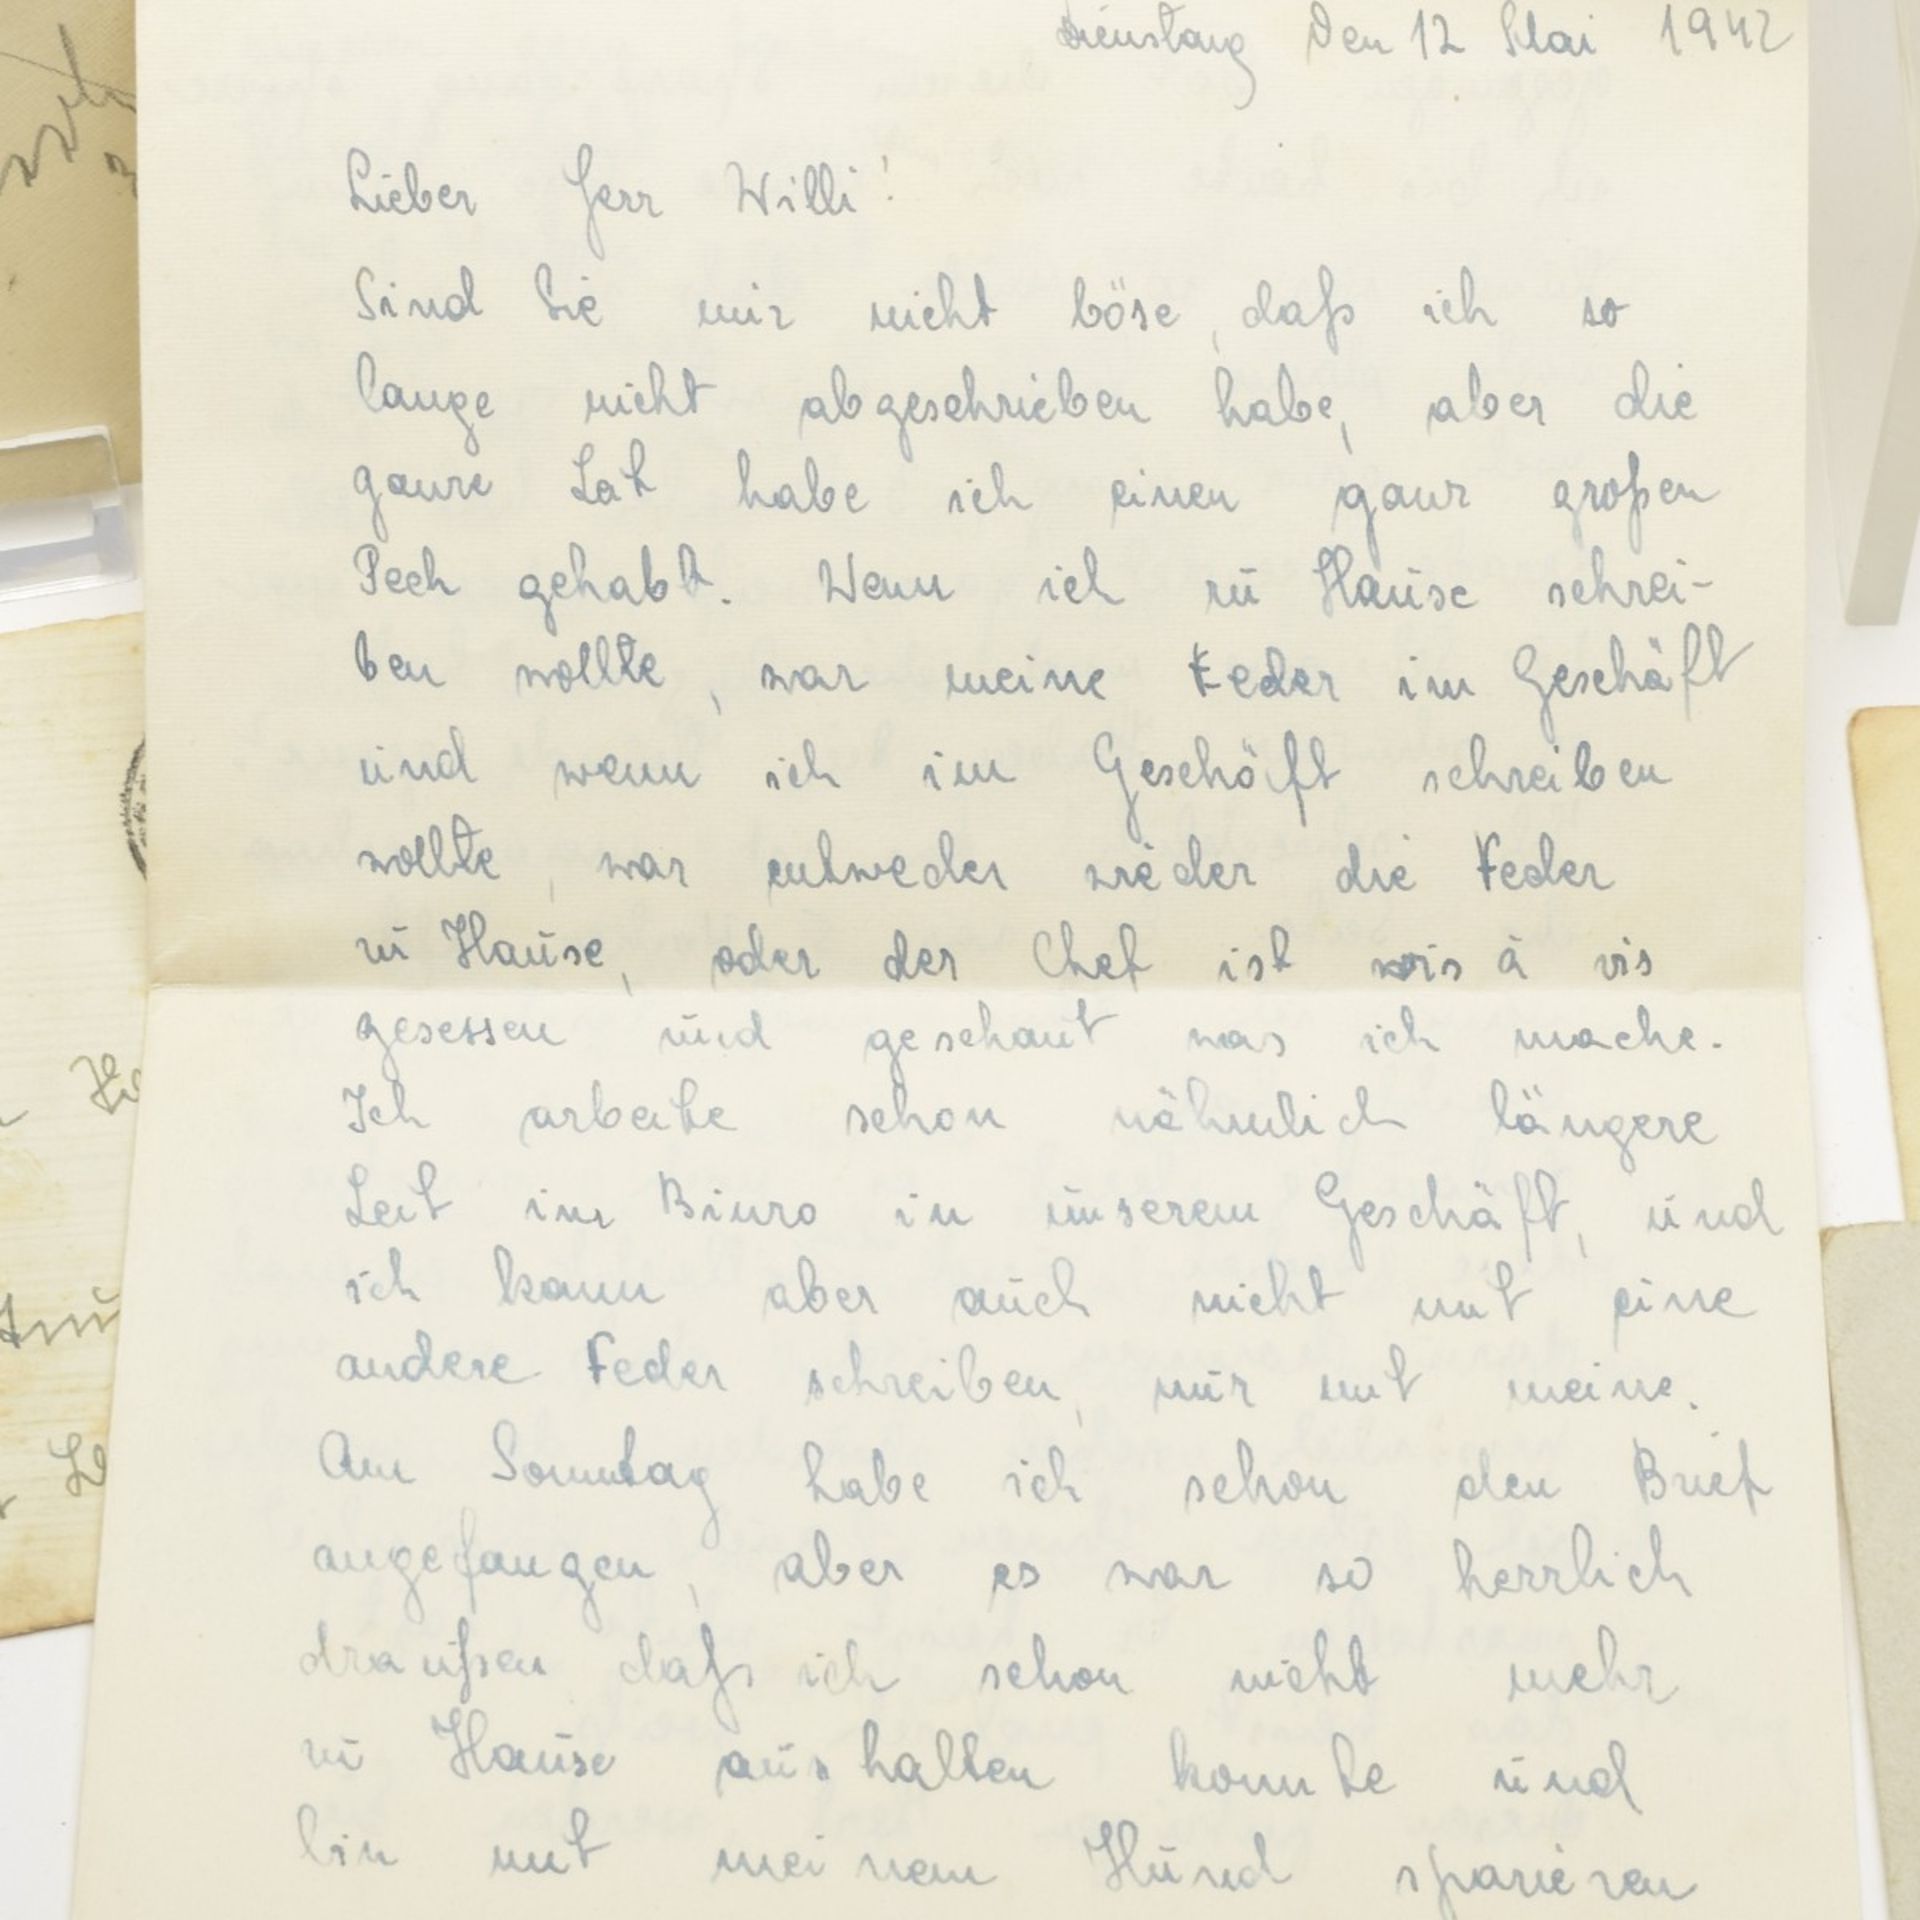 Dienstag den 12 Mai 1942
Lieber Herr Willi!
Sind Sie mir nicht böse, daß ich so
lange nicht abgeschrieben habe, aber die
ganze Zeit habe ich einen ganz großen
Pech gehabt. Wenn ich zu Hause schrei-
ben wollte, war meine Feder im Geschäft
und wenn ich im Geschäft schreiben
wollte, war entweder wieder die Feder
zu Hause, oder der Chef ist vis à vis
gesessen und geschaut was ich mache.
Ich arbeite schon nähmlich längere
Zeit im Biuro in unserem Geschäft, und
ich kann aber auch nicht mit eine
andere Feder schreiben, nur mit meine.
Am Sonntag habe ich schon den Brief
angefangen, aber es war so herrlich
draußen daß ich schon nicht mehr
zu Hause aushalten konnte und
bin mit meinem Hund spazieren